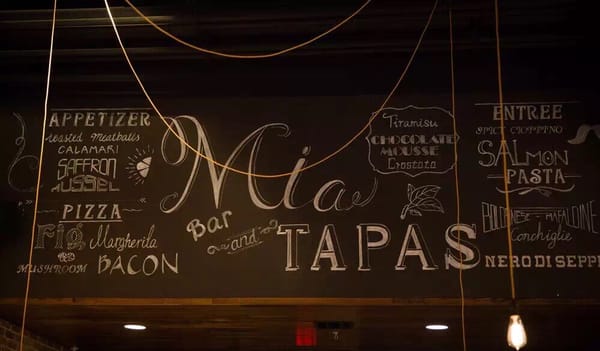 APPETIZER
roasted Meatballs
CALAMARI
SAFFRON
PIZZA
Fig Margherita
&
MUSHROOM BACON
Mia
Bar
and
TAPAS
Tiramisu
CHOCOLATE
MOUSSE
Crostata
ENTREE
SPICY CIOPPINO
SALMON
PASTA
BOLOGNESE - MAFALDINE
Conchiglie
NERO DI SEPP